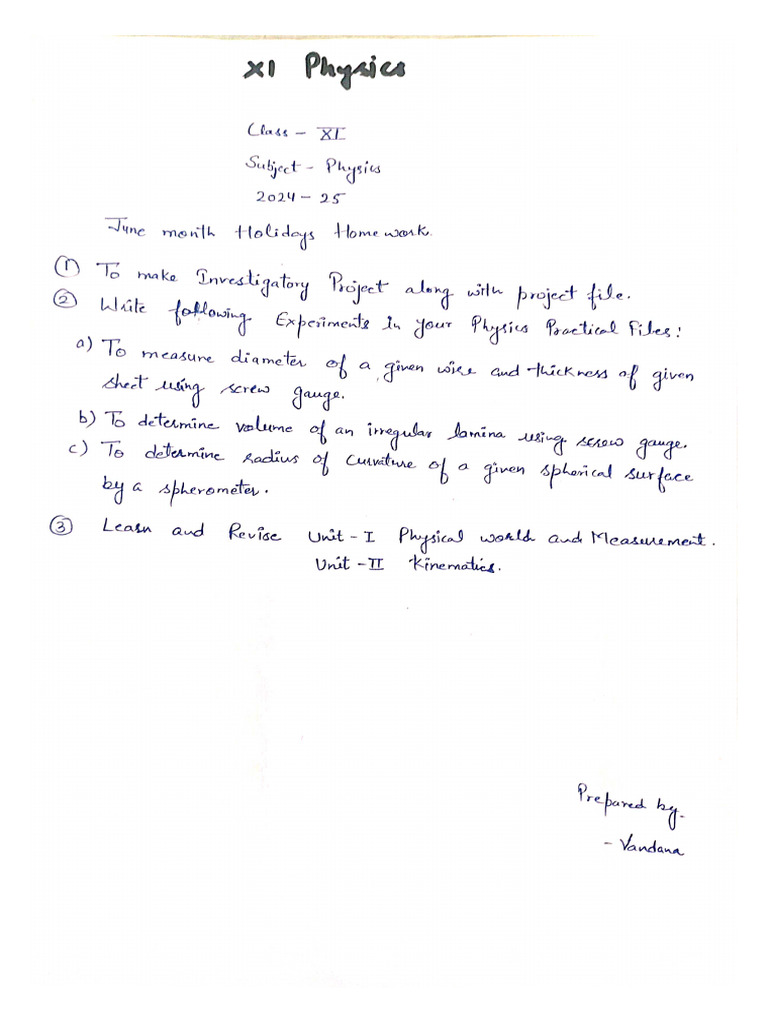 XI Physics
Class - XI
Subject - Physics
2024 - 25
June month Holidays Homework.
① To make Investigatory Project along with project file.
② Write following Experiments in your Physics Practical Files:
a) To measure diameter of a given wire and thickness of given
sheet using screw gauge.
b) To determine volume of an irregular lamina using screw gauge.
c) To determine radius of curvature of a given spherical surface
by a spherometer.
③ Learn and Revise Unit - I Physical world and Measurement.
Unit - II Kinematics.
Prepared by -
- Vandana